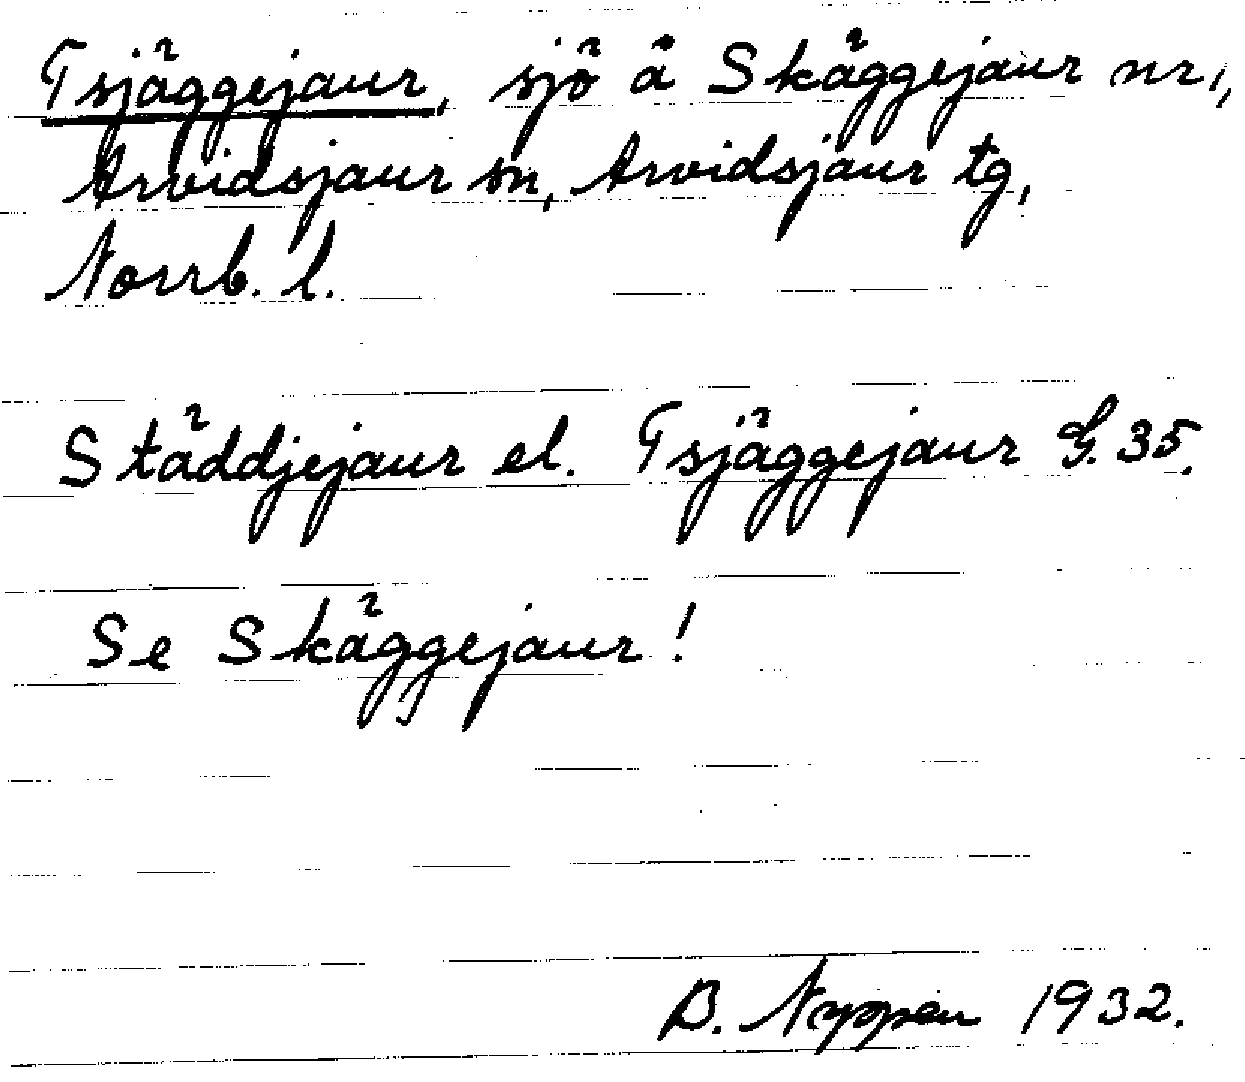 Tsjäggejaur, sjö å Skäggejaur nr 1,
Arvidsjaur sn, Arvidsjaur tg,
Norrb. l.
Städdjejaur el. Tsjäggejaur G. 35.
Se Skäggejaur!
B. Nyppen 1932.